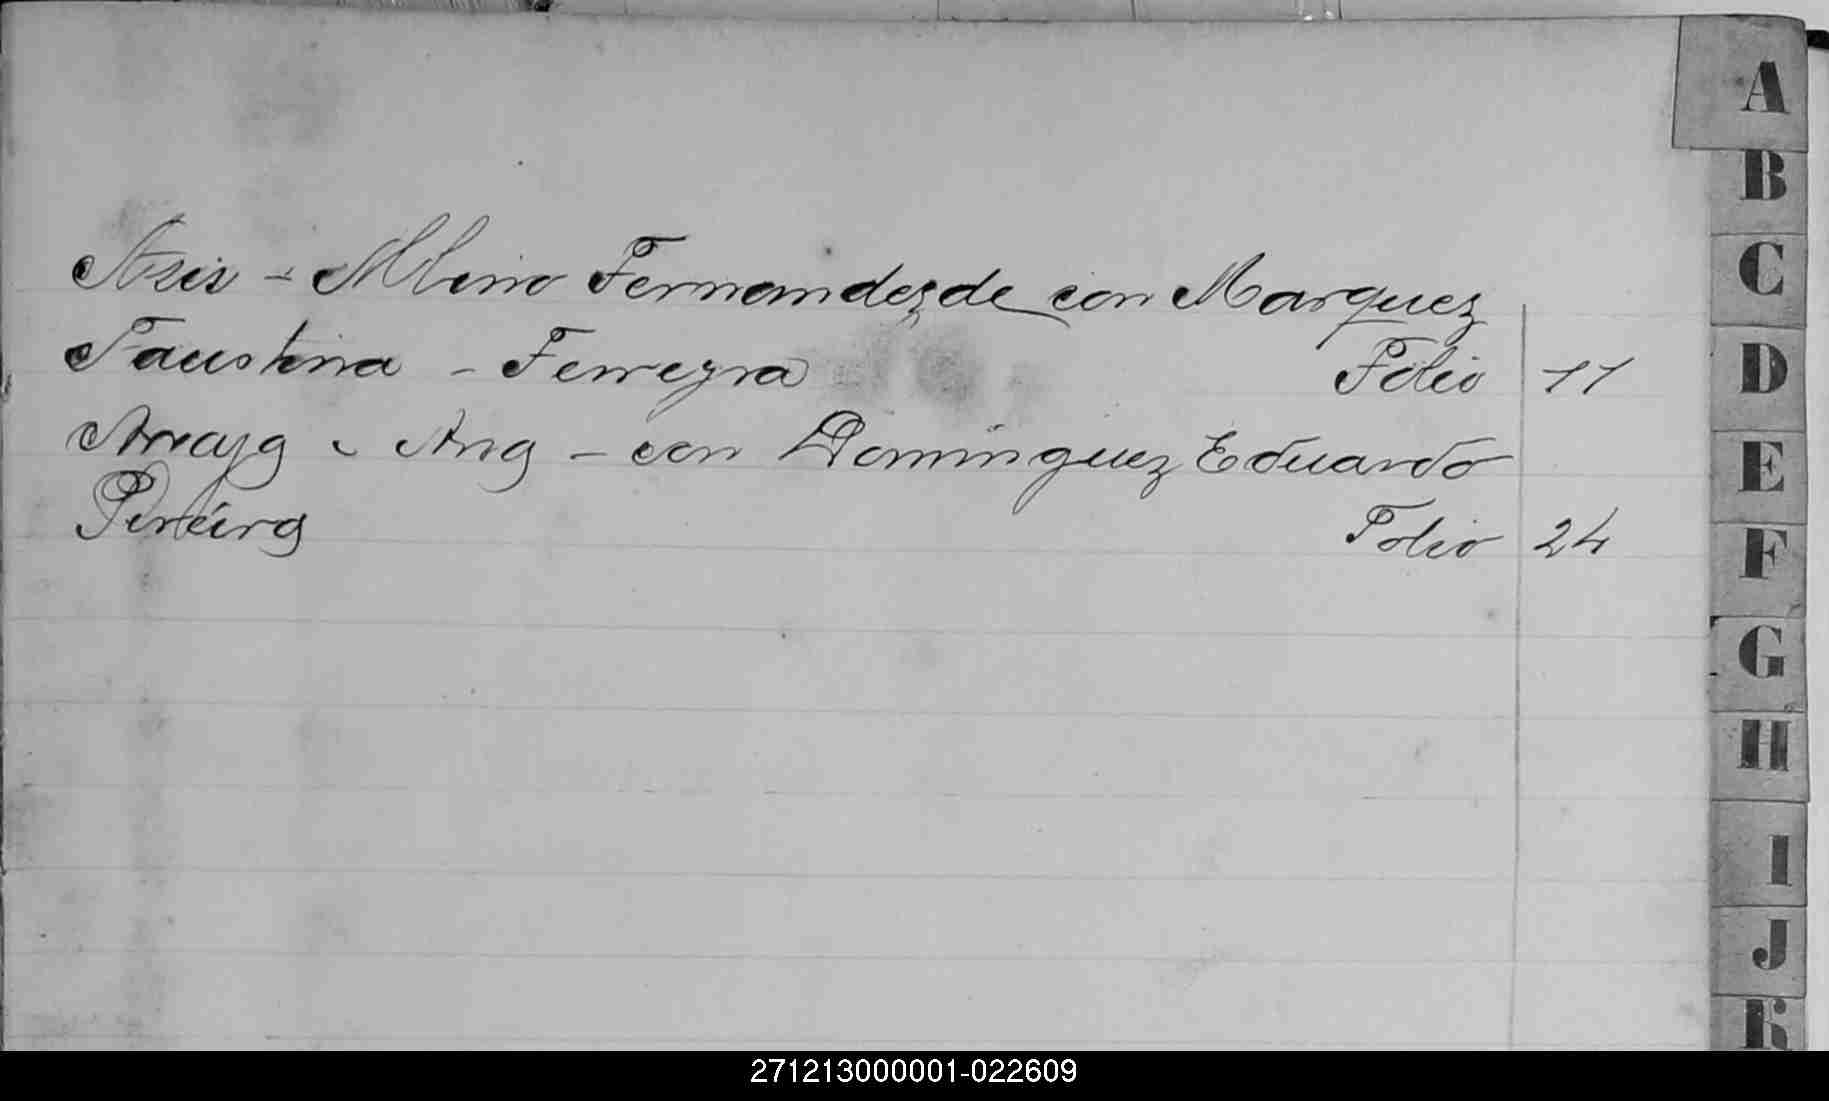 Asis - Albino Fernandez de con Marquez
Faustina - Ferreyra Folio 11
Araya - Ana - con Dominguez Eduardo
Pereira Folio 24
A
B
C
D
E
F
G
H
I
J
K
271213000001-022609